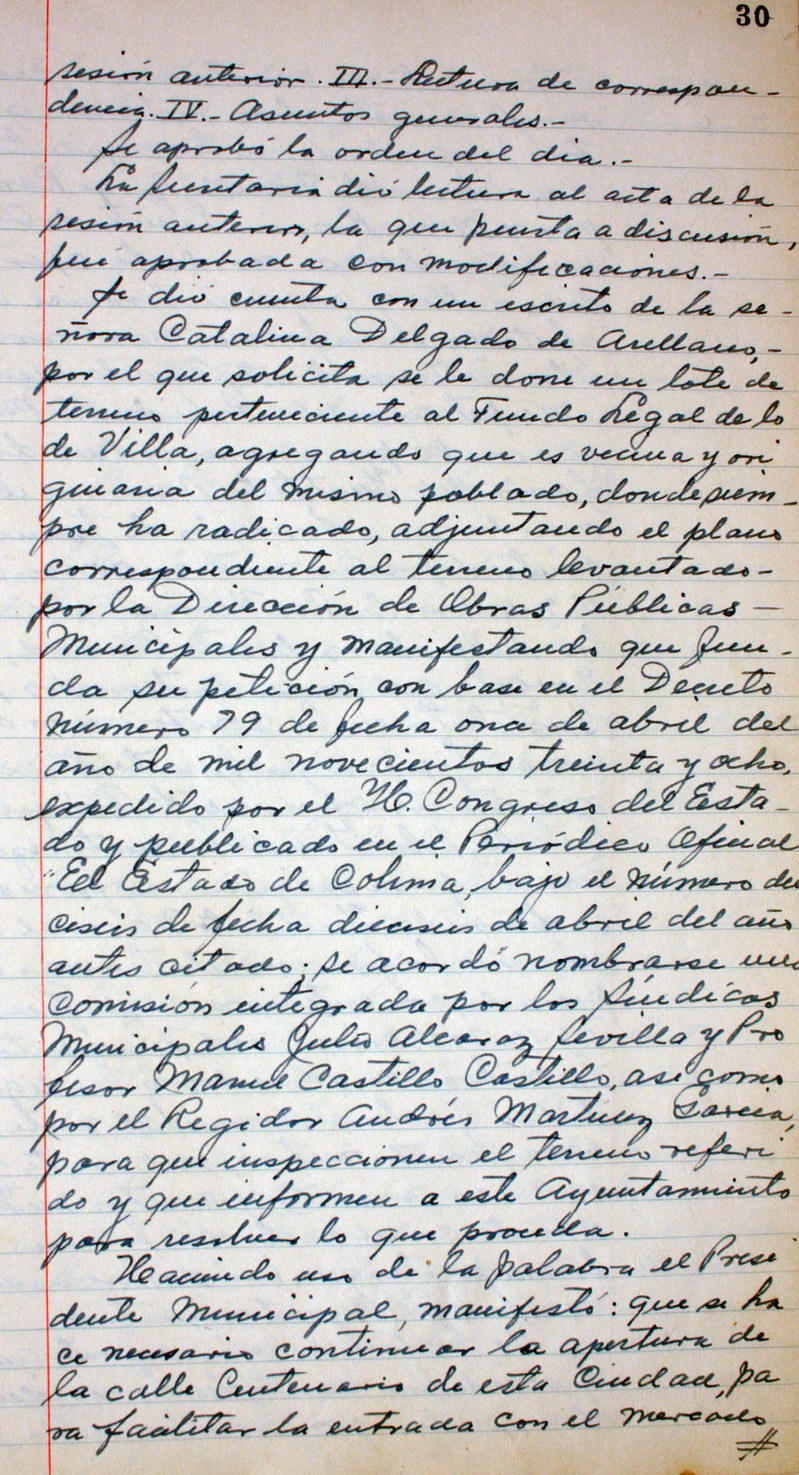 30
sesión anterior. III.- Lectura de correspon-
dencia. IV.- Asuntos generales.-
Se aprobó la orden del dia.-
La Secretaria dió lectura al acta de la
sesión anterior, la que puesta a discusión,
fué aprobada con modificaciones.-
Se dió cuenta con un escrito de la se-
ñora Catalina Delgado de Arellano,-
por el que solicita se le done un lote de
terreno perteneciente al Fundo Legal de lo
de Villa, agregando que es vecina y ori
ginaria del mismo poblado, donde siem-
pre ha radicado, adjuntando el plano
correspondiente al terreno levantado-
por la Dirección de Obras Públicas-
Municipales y manifestando que fun-
da su petición con base en el Decreto
número 79 de fecha once de abril del
año de mil novecientos treinta y ocho,
expedido por el H. Congreso del Esta-
do y publicado en el Periódico Oficial
"El Estado de Colima, bajo el número die
ciseis de fecha dieciseis de abril del año
antes citado; se acordó nombrarse una
Comisión integrada por los Síndicos
Municipales Julio Alcaraz Sevilla y Pro
fesor Manuel Castillo Castillo, asi como
por el Regidor Andrés Martinez Garcia,
para que inspeccionen el terreno referi
do y que informen a este Ayuntamiento
para resolver lo que proceda.
Haciendo uso de la palabra el Presi
dente Municipal, manifestó: que se ha
ce necesario continuar la apertura de
la calle Centenario de esta Ciudad, pa
ra facilitar la entrada con el mercado